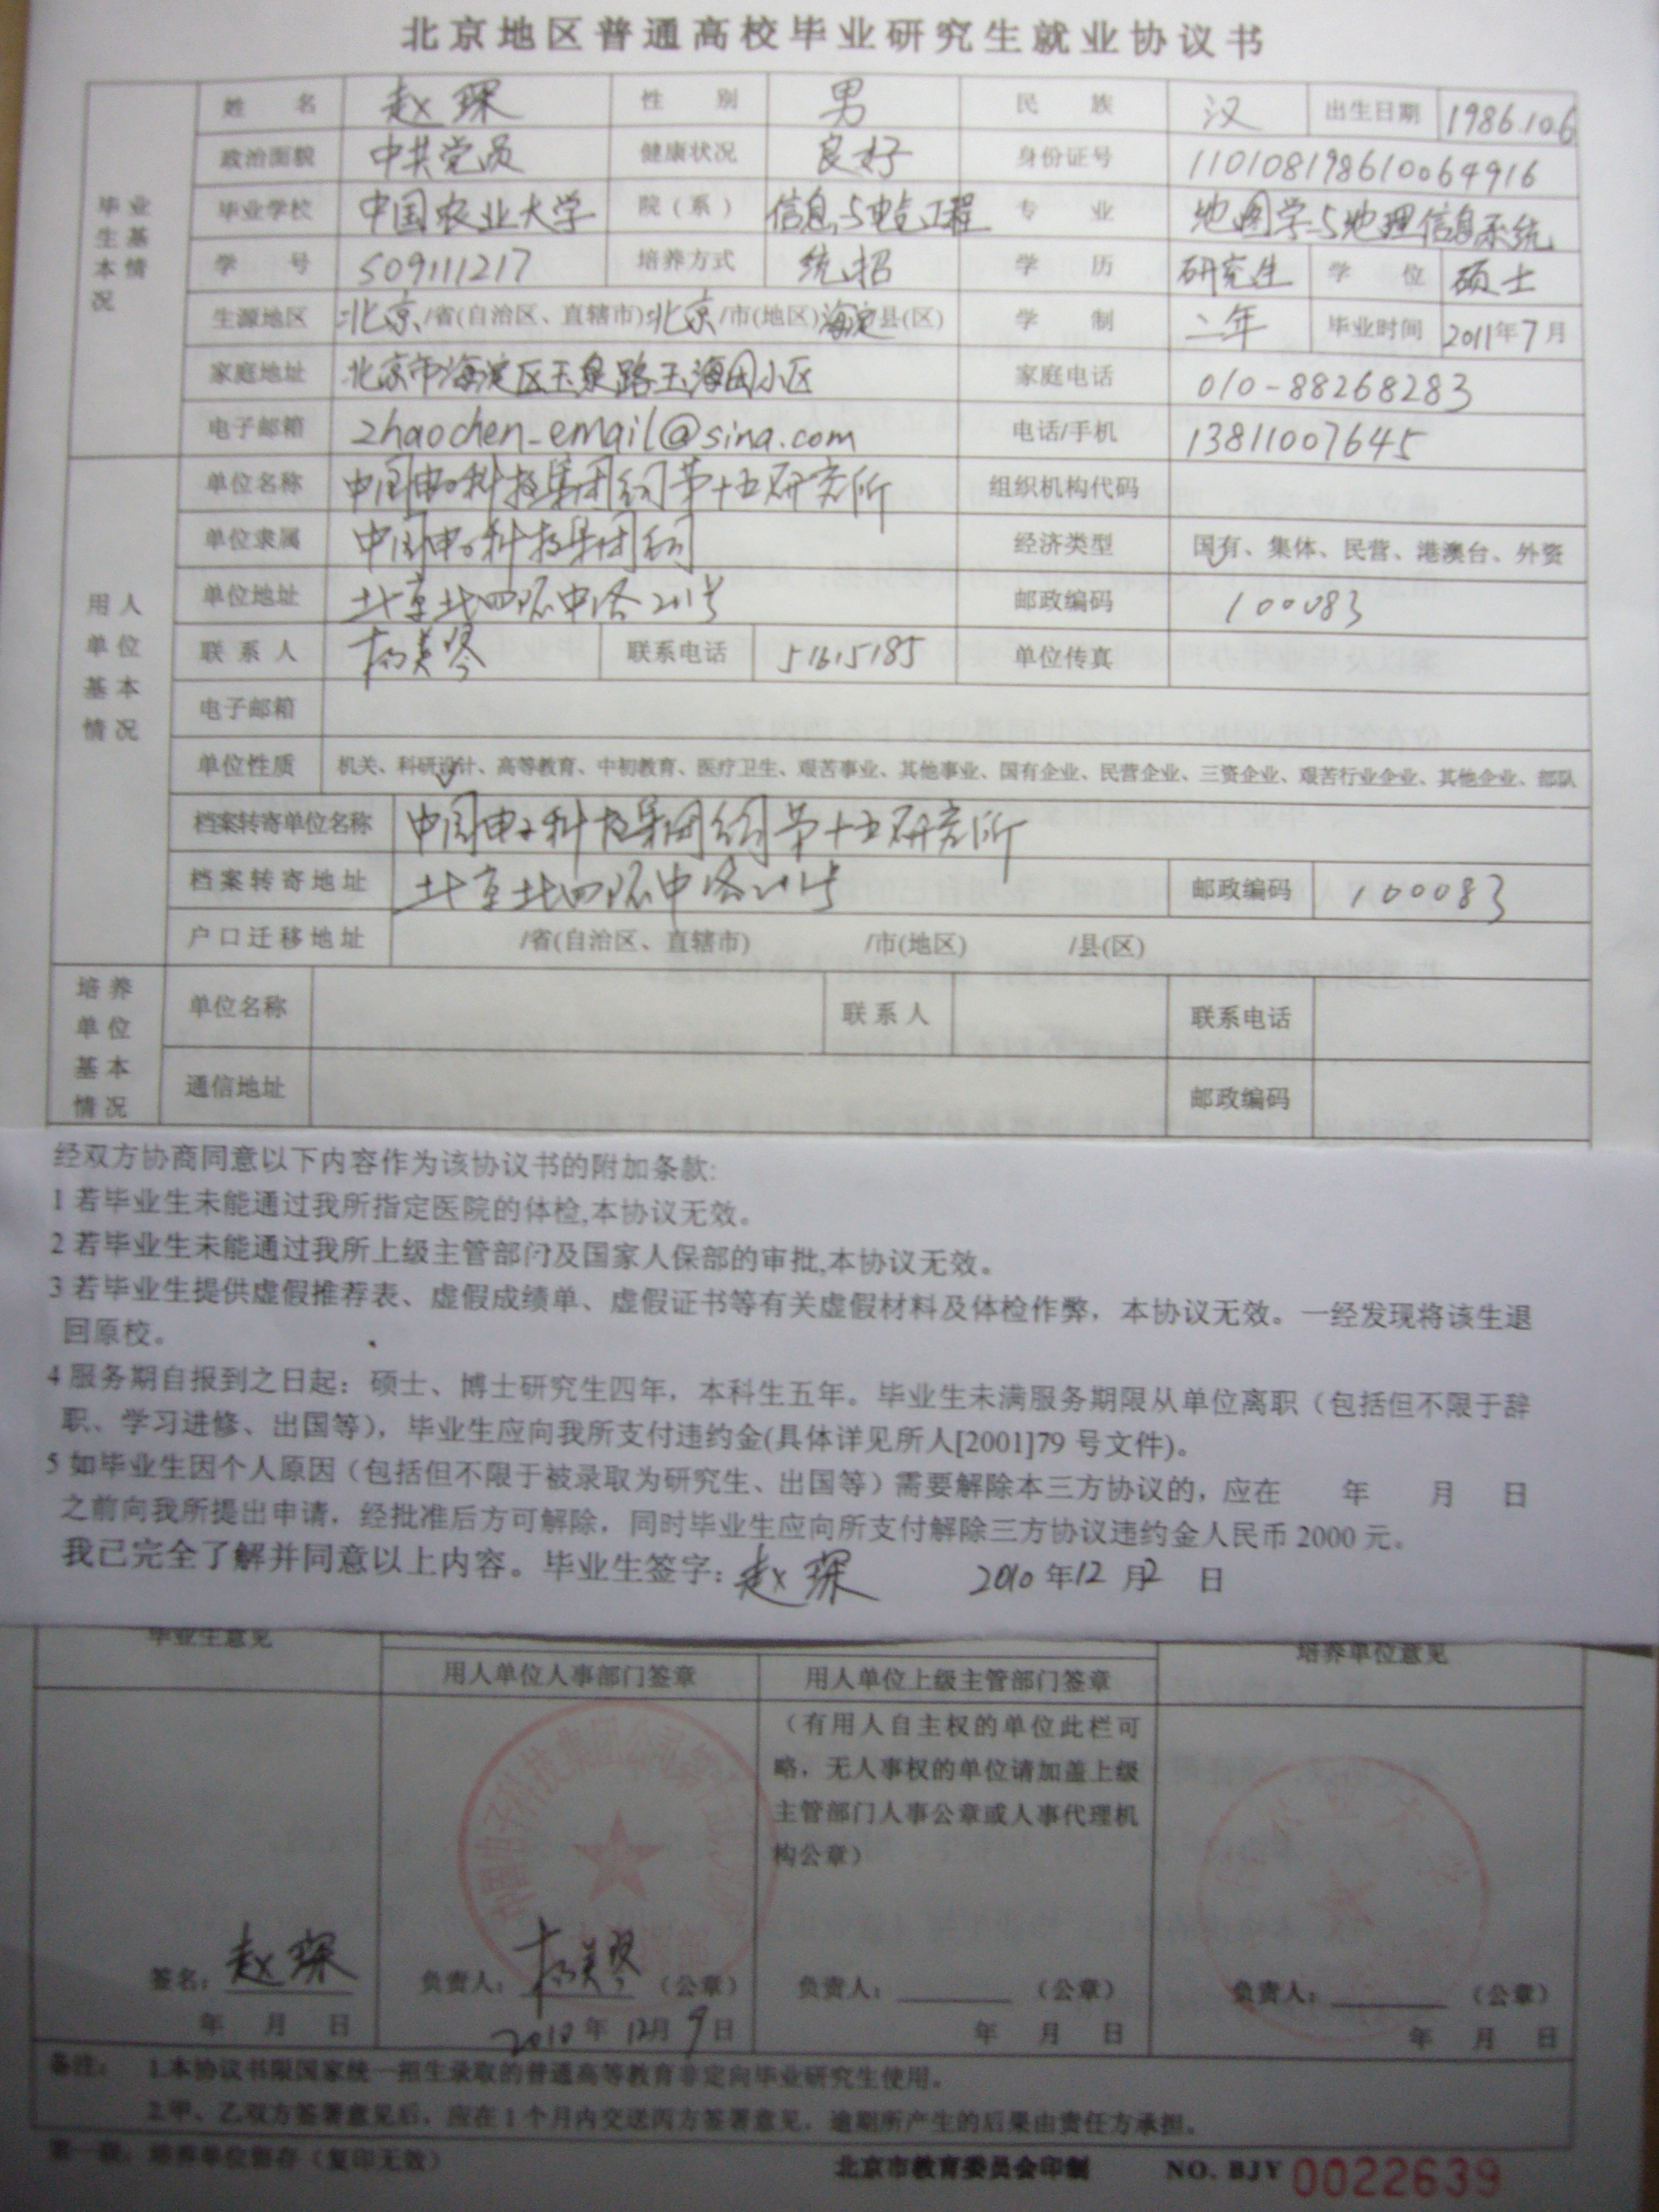 北京地区普通高校毕业研究生就业协议书
毕业生基本情况
姓 名 赵琛 性 别 男 民 族 汉 出生日期 1986.10.6
政治面貌 中共党员 健康状况 良好 身份证号 110108198610064916
毕业学校 中国农业大学 院(系) 信息与电气工程 专 业 地图学与地理信息系统
学 号 S09111217 培养方式 统招 学 历 研究生 学 位 硕士
生源地区 北京/省(自治区、直辖市)北京/市(地区)海淀县(区) 学 制 二年 毕业时间 2011年7月
家庭地址 北京市海淀区玉泉路玉海园小区 家庭电话 010-88268283
电子邮箱 zhaochen_email@sina.com 电话/手机 13811007645
用人单位基本情况
单位名称 中国电子科技集团公司第十五研究所 组织机构代码
单位隶属 中国电子科技集团公司 经济类型 国有、集体、民营、港澳台、外资
单位地址 北京北四环中路211号 邮政编码 100083
联系人 杨美琴 联系电话 51615185 单位传真
电子邮箱
单位性质 机关、科研设计、高等教育、中初教育、医疗卫生、艰苦事业、其他事业、国有企业、民营企业、三资企业、艰苦行业企业、其他企业、部队
档案转寄单位名称 中国电子科技集团公司第十五研究所
档案转寄地址 北京北四环中路211号 邮政编码 100083
户口迁移地址 /省(自治区、直辖市) /市(地区) /县(区)
培养单位基本情况
单位名称 联系人 联系电话
通信地址 邮政编码
经双方协商同意以下内容作为该协议书的附加条款:
1 若毕业生未能通过我所指定医院的体检,本协议无效。
2 若毕业生未能通过我所上级主管部门及国家人保部的审批,本协议无效。
3 若毕业生提供虚假推荐表、虚假成绩单、虚假证书等有关虚假材料及体检作弊，本协议无效。一经发现将该生退
回原校。
4 服务期自报到之日起：硕士、博士研究生四年，本科生五年。毕业生未满服务期限从单位离职（包括但不限于辞
职、学习进修、出国等)，毕业生应向我所支付违约金(具体详见所人[2001]79 号文件)。
5 如毕业生因个人原因（包括但不限于被录取为研究生、出国等）需要解除本三方协议的，应在 年 月 日
之前向我所提出申请，经批准后方可解除，同时毕业生应向所支付解除三方协议违约金人民币 2000 元。
我已完全了解并同意以上内容。毕业生签字: 赵琛 2010 年 12 月 2 日
毕业生意见 培养单位意见
用人单位人事部门签章 用人单位上级主管部门签章
（有用人自主权的单位此栏可
略，无人事权的单位请加盖上级
主管部门人事公章或人事代理机
构公章）
中国电子科技集团公司第十五研究所
签名：赵琛 负责人：杨美琴 （公章） 负责人： （公章） 负责人： （公章）
年 月 日 2010 年 12月 9日 年 月 日 年 月 日
备注： 1.本协议书限国家统一招生录取的普通高等教育非定向毕业研究生使用。
2.甲、乙双方签署意见后，应在 1 个月内交送丙方签署意见，逾期所产生的后果由责任方承担。
第一联：培养单位留存（复印无效） 北京市教育委员会印制 NO. BJY 0022639